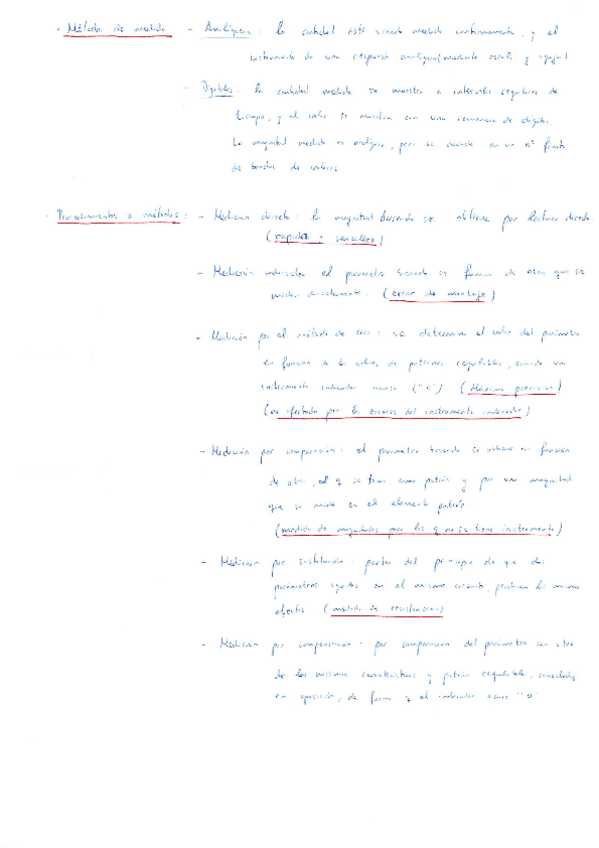 · Método de medida - Analógicas: la cantidad está siendo medida continuamente, y el
instrumento da una respuesta analógica (mediante escala y aguja)
- Digitales: la cantidad medida se muestra a intervalos regulares de
tiempo, y el valor se muestra con una secuencia de dígitos.
La magnitud medida es analógica, pero se convierte en un nº finito
de valores.
· Procedimientos o métodos: - Medición directa: la magnitud buscada se obtiene por lectura directa.
(rápidas y sencillas)
- Medición indirecta: el parámetro buscado es función de otros que se
miden directamente. (error de montaje)
- Medición por el método de cero: se determina el valor del parámetro
en función de los valores de patrones regulables, cuando un
instrumento indicador marca ("0") (Máxima precisión)
(no afectada por los errores del instrumento indicador)
- Medición por comparación: el parámetro buscado se obtiene en función
de otro, el q se toma como patrón y por una magnitud
que se mide en el elemento patrón
(medida de magnitudes para las q no se tiene instrumento)
- Medición por sustitución: parten del principio de que dos
parámetros iguales en el mismo circuito, producen los mismos
efectos (medida de resistencias)
- Medición por compensación: por comparación del parámetro con otro
de las mismas características y patrón regulable, conectados
en oposición, de forma q el indicador marca "0"